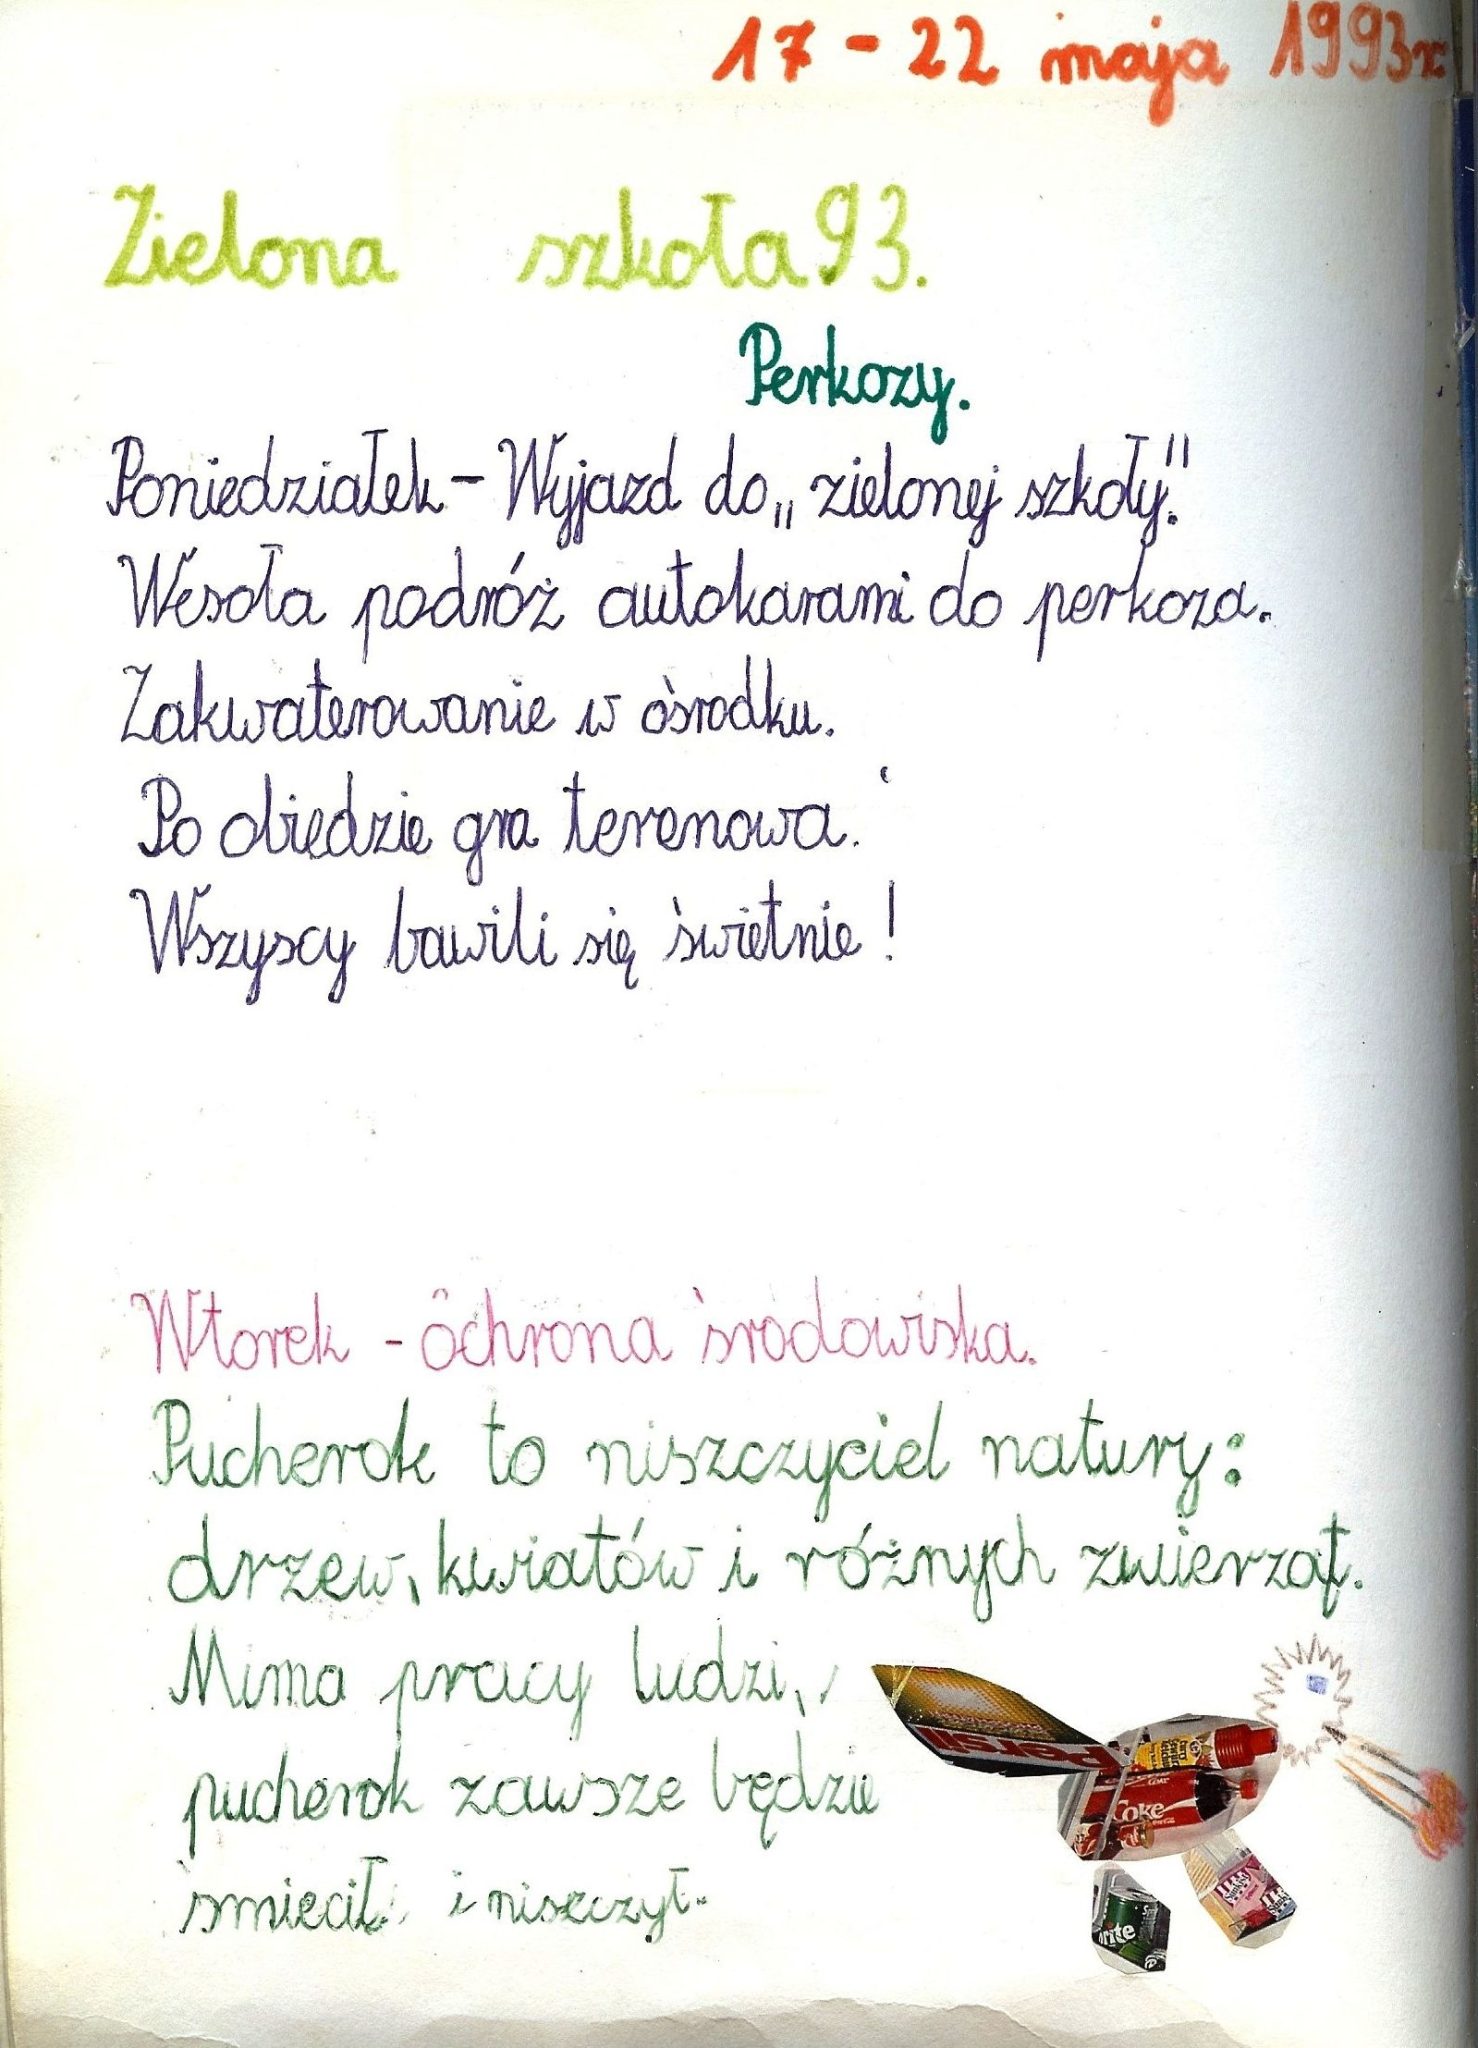 17 - 22 maja 1993r
Zielona szkoła 93.
Perkozy.
Poniedziałek - Wyjazd do „zielonej szkoły."
Wesoła podróż autokarami do perkoza.
Zakwaterowanie w ośrodku.
Po obiedzie gra terenowa.
Wszyscy bawili się świetnie!
Wtorek - Ochrona środowiska.
Pucherok to niszczyciel natury:
drzew, kwiatów i różnych zwierząt.
Mimo pracy ludzi,
pucherok zawsze będzie
śmiecił i niszczył.
Persil
Coke
rite